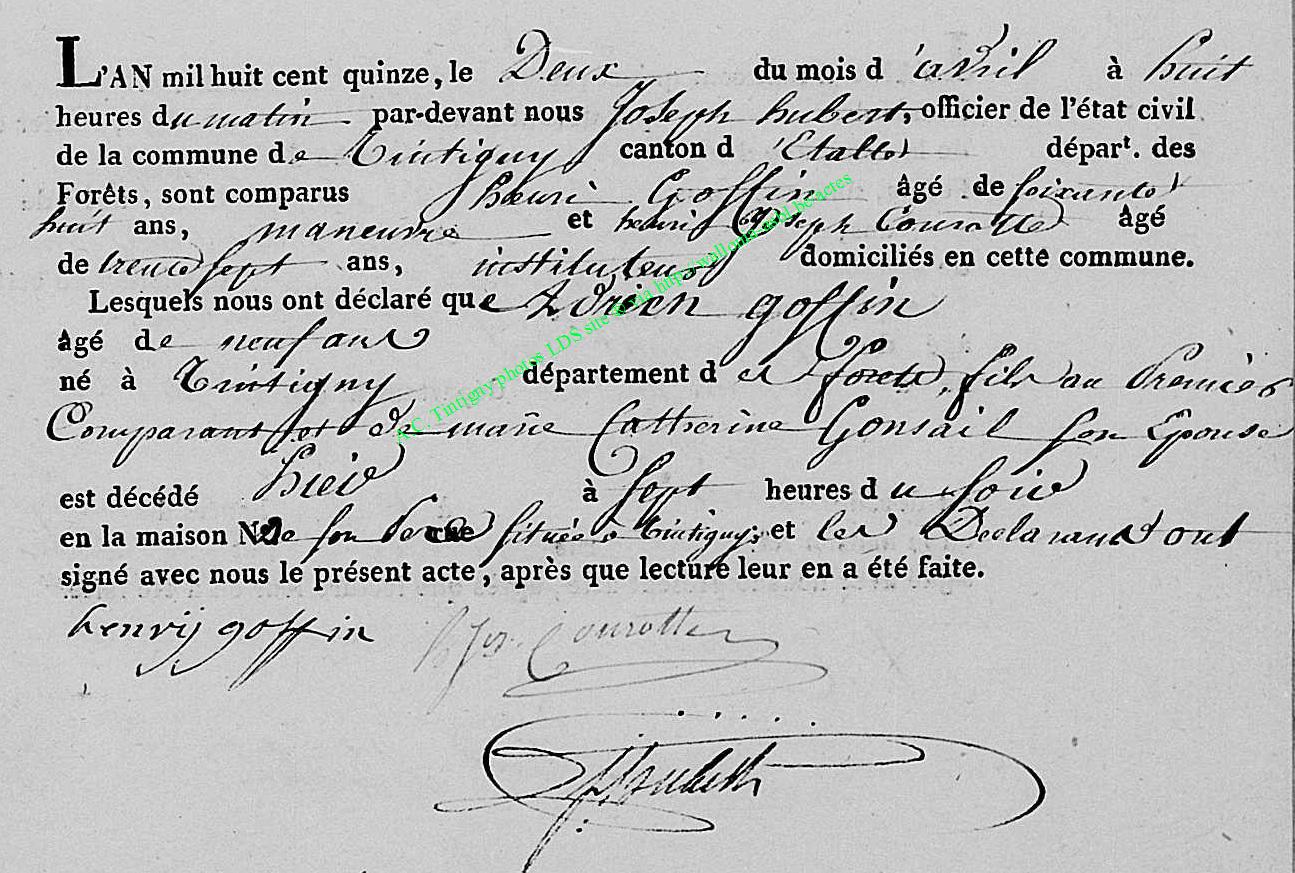 L'AN mil huit cent quinze, le Deux du mois d'avril à huit
heures du matin par-devant nous Joseph hubert, officier de l'état civil
de la commune de Tintigny canton d'Etalle départ. des
Forêts, sont comparus henri Goffin âgé de soixante
huit ans, maneuvre et henri Joseph Courotte âgé
de trente sept ans, instituteur domiciliés en cette commune.
Lesquels nous ont déclaré que Adrien goffin
âgé de neuf ans
né à Tintigny département des forets, fils au Premier
Comparant et de marie Catherine Gonsail son Epouse
est décédé hier à sept heures du soir
en la maison de son Pere située à tintigny; et les Declarants ont
signé avec nous le présent acte, après que lecture leur en a été faite.
henrij goffin Courotte
Hubert
A.C. Tintigny photos LDS site